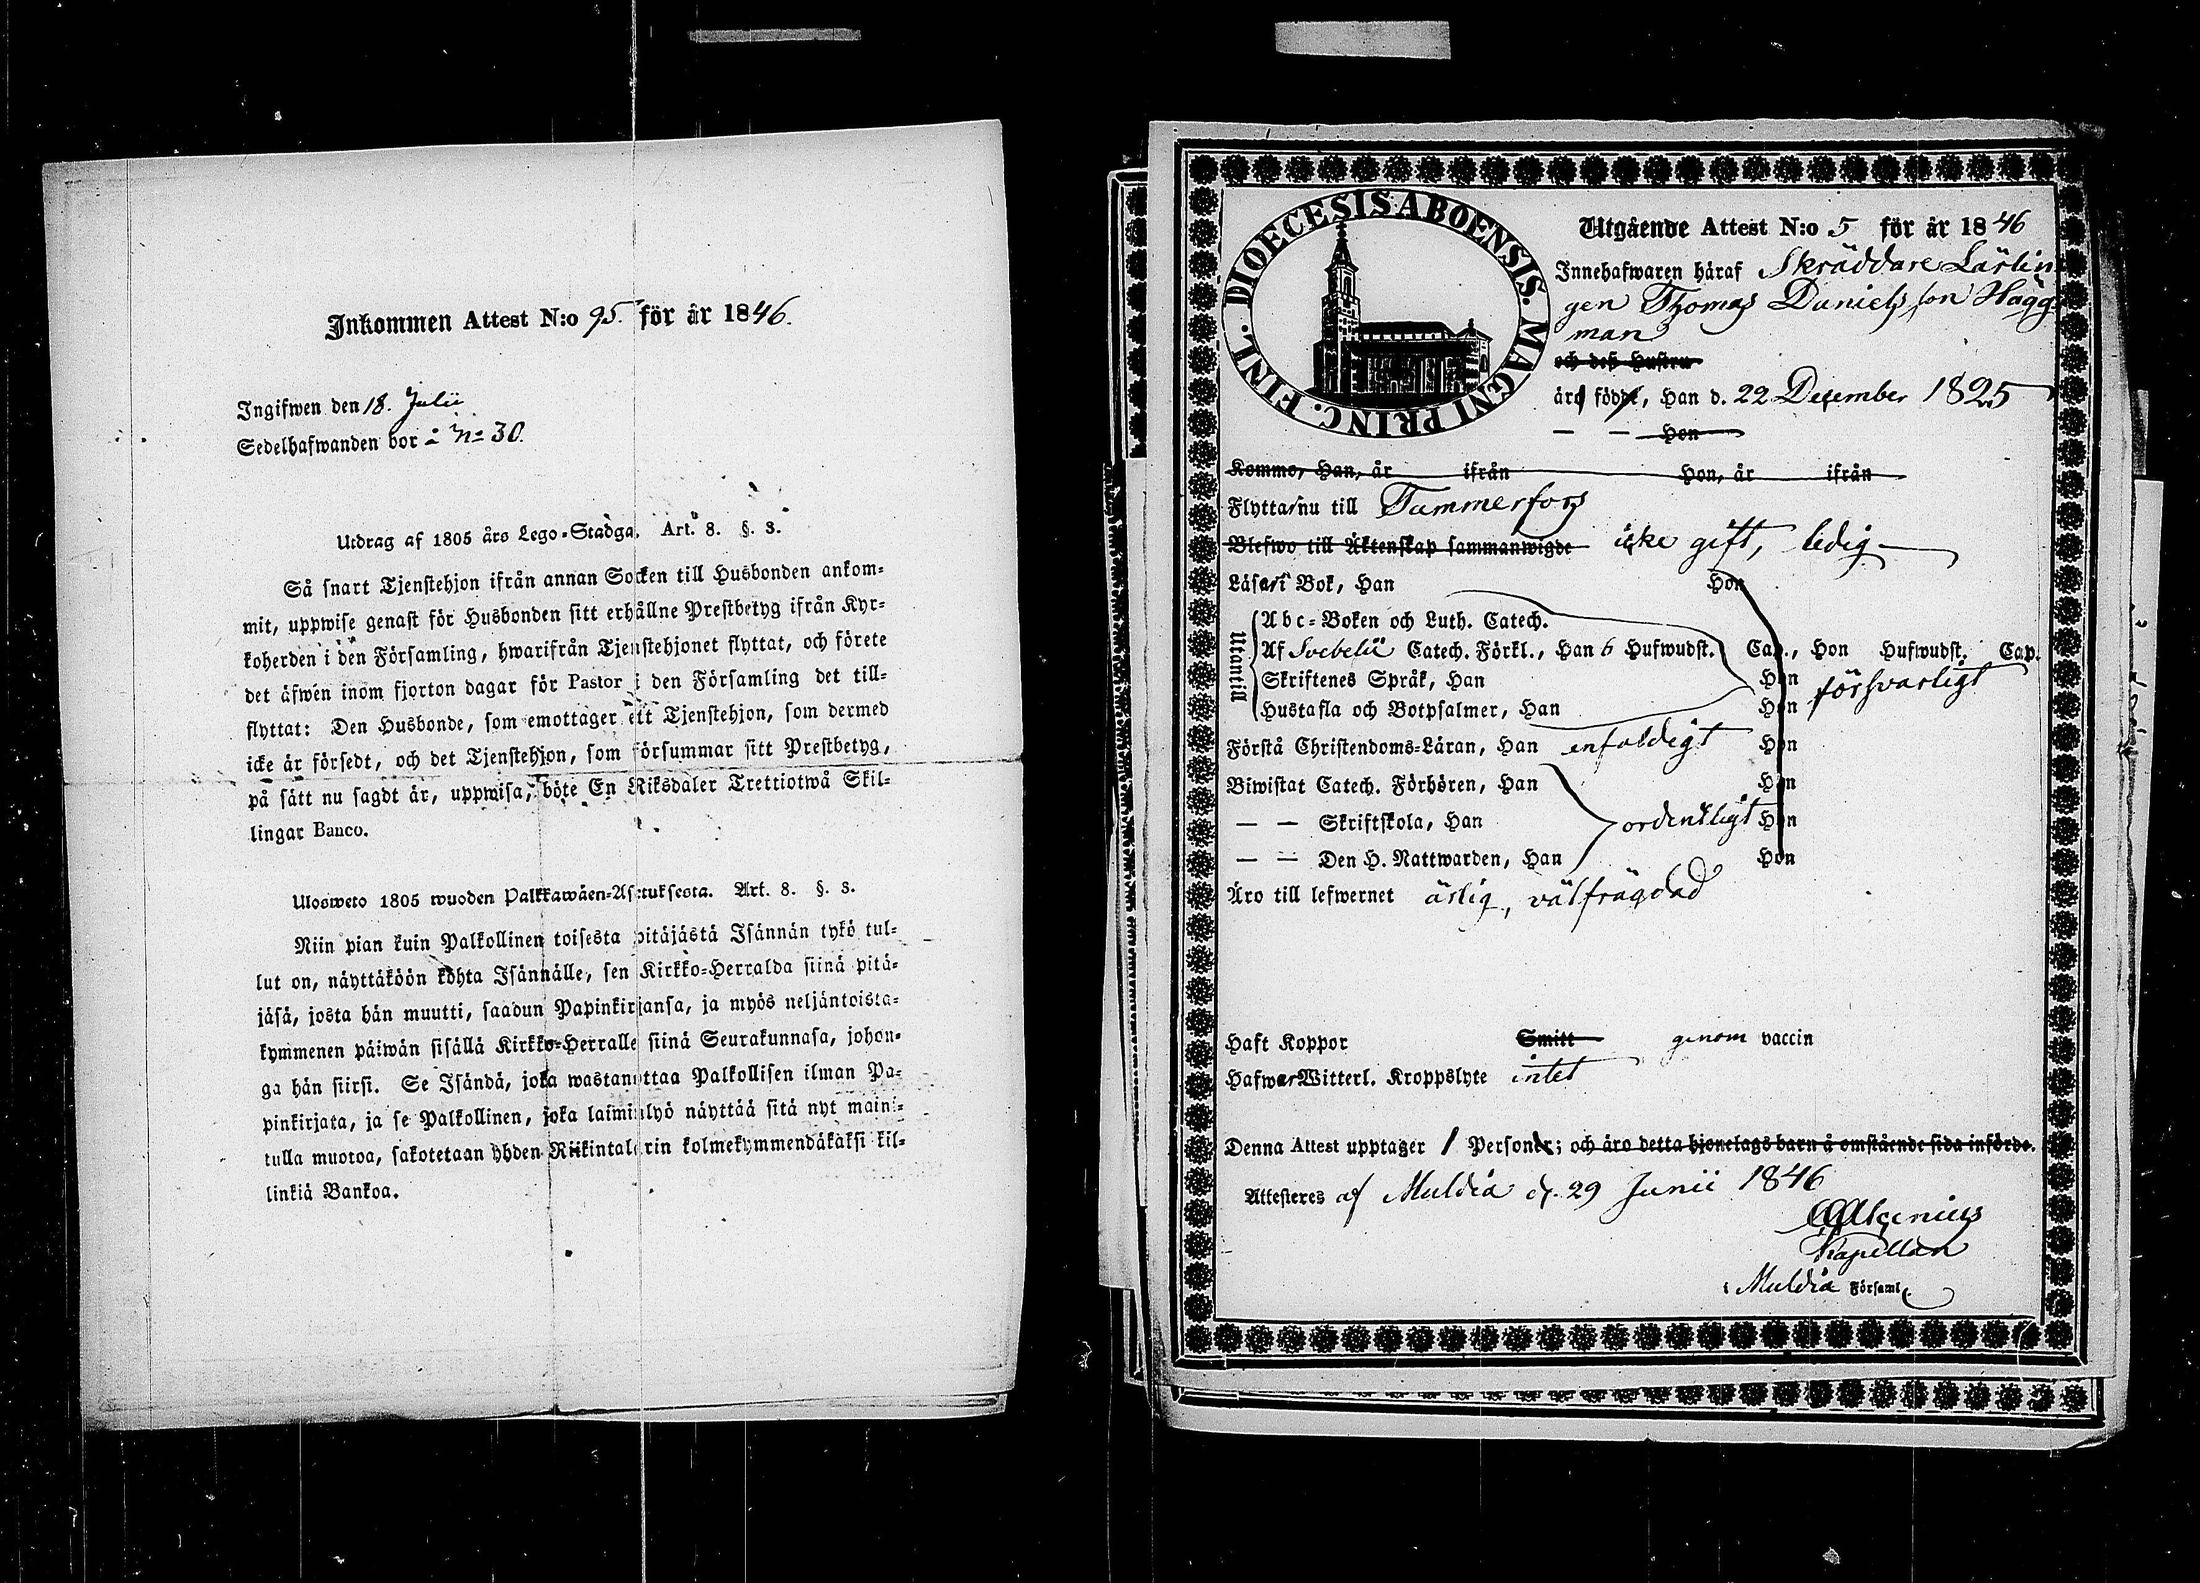 Inkommen Attest N:o 95. för år 1846.
Ingifwen den 18. Julii
Sedelhafwanden bor i N:o 30.
Utdrag af 1805 års Lego-Stadga. Art. 8. §. 3.
Så snart Tjenstehjon ifrån annan Socken till Husbonden ankom-
mit, uppwise genast för Husbonden sitt erhållne Prestbetyg ifrån Kyr-
koherden i den Församling, hwarifrån Tjenstehjonet flyttat, och förete
det äfwén inom fjorton dagar för Pastor i den Församling det till-
flyttat: Den Husbonde, som emottager ett Tjenstehjon, som dermed
icke är försedt, och det Tjenstehjon, som försummar sitt Prestbetyg,
på sätt nu sagdt är, uppwisa, böte En Riksdaler Trettiotwå Skil-
lingar Banco.
Ulosweto 1805 wuoden Palkkawäen-Asetuksesta. Art. 8. §. 3.
Niin pian kuin Palkollinen toisesta pitäjästä Isännän tykö tul-
lut on, näyttäköön kohta Isännälle, sen Kirkko-Herralda siinä pitä-
jäsä, josta hän muutti, saadun Papinkirjansa, ja myös neljäntoista-
kymmenen päiwän sisällä Kirkko-Herralle siinä Seurakunnasa, johon-
ga hän siirsi. Se Isändä, joka wastanottaa Palkollisen ilman Pa-
pinkirjata, ja se Palkollinen, joka laiminlyö näyttää sitä nyt maini-
tulla muotoa, sakotetaan yhden Riikintalarin kolmekymmendäkaksi kil-
linkiä Bankoa.
DIOECESIS ABOENSIS. MAGNI PRINC. FINL.
Utgående Attest N:o 5 för år 1846
Innehafwaren häraf Skräddare Lärlin
gen Thomas Danielsson Hägg-
man
och deß Hustru
äro födde, Han d. 22 December 1825
— — Hon
Kommo, Han, år ifrån Hon, år ifrån
Flytta nu till Tammerfors
Blefwo till Äktenskap sammanwigde icke gift, ledig
Läsa i Bok, Han Hon
Utantill
Abc-Boken och Luth. Catech.
Af Svebelii Catech. Förkl., Han 6 Hufwudst. Cap., Hon Hufwudst. Cap.
Skriftenes Språk, Han Hon försvarligt
Hustafla och Botpsalmer, Han Hon
Förstå Christendoms-Läran, Han enfaldigt Hon
Biwistat Catech. Förhören, Han Hon
— — Skriftskola, Han ordentligt Hon
— — Den H. Nattwarden, Han Hon
Äro till lefwernet ärlig, välfrägdad
Haft Koppor Smitt genom vaccin
Hafwa Witterl. Kroppslyte intet
Denna Attest upptager 1 Personer; och äro detta hjonelags barn å omstående sida införde.
Attesteres af Muldia d. 29 Junii 1846
Kapellan
i Muldia Församl.